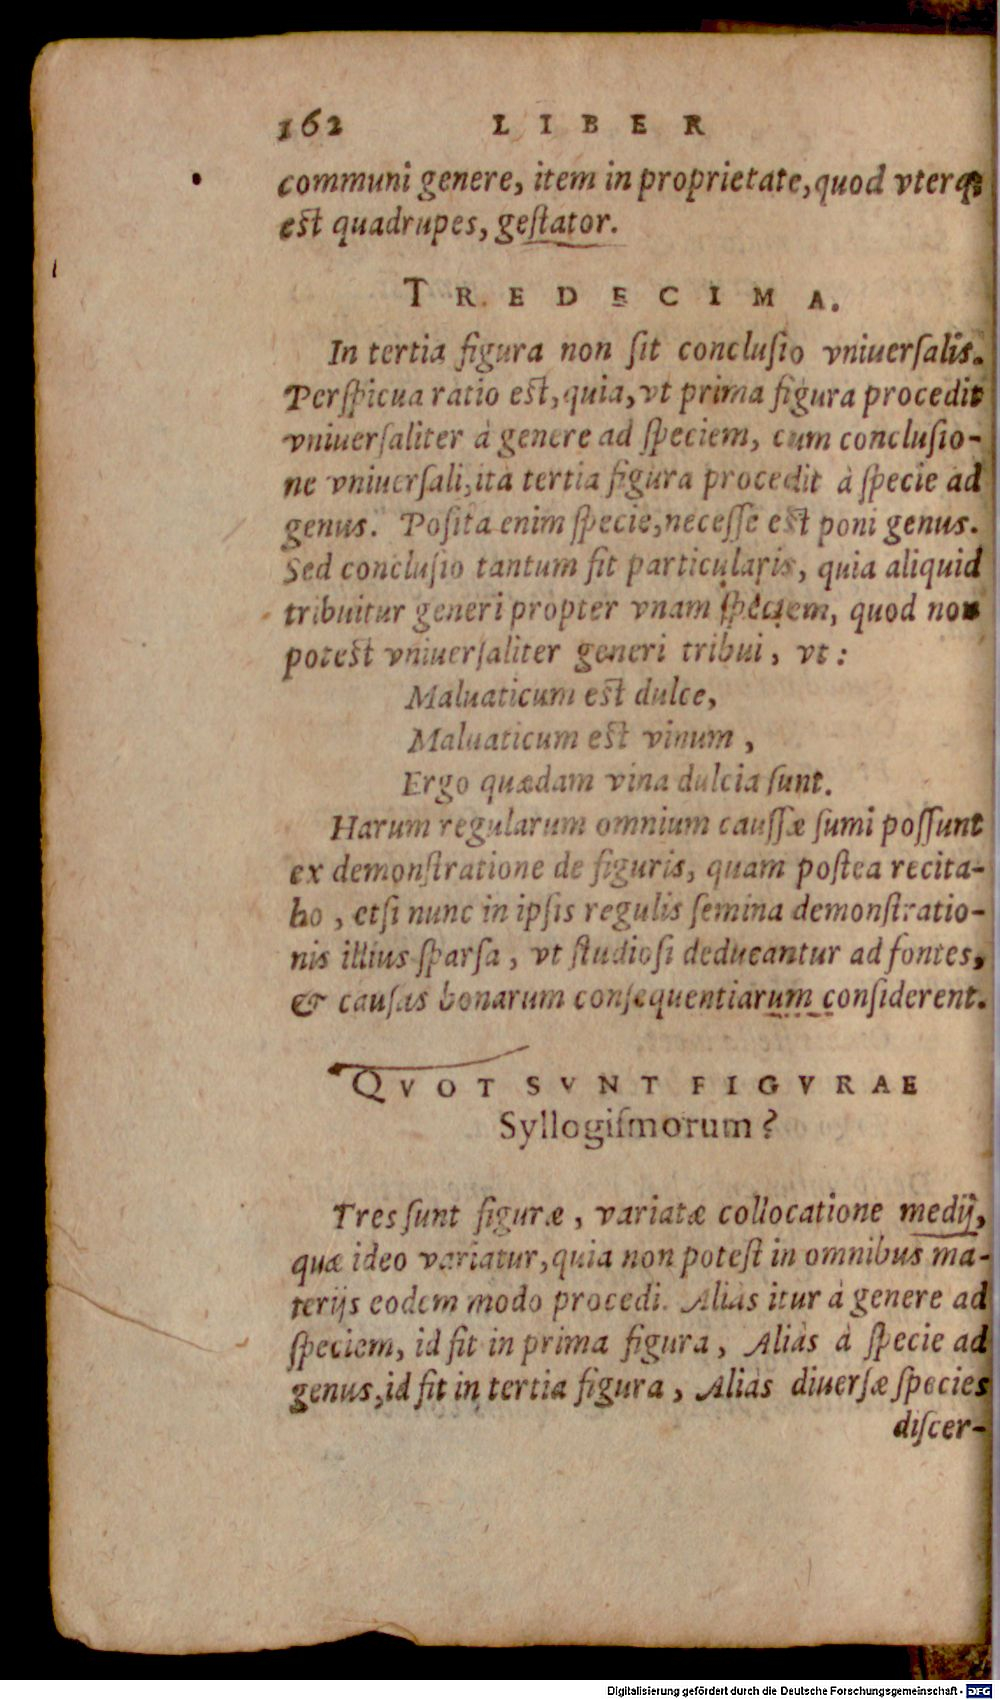 162 LIBER
communi genere, item in proprietate, quod vterq;
est quadrupes, geſtator.
TREDECIMA.
In tertia figura non ſit concluſio vniuerſalis.
Perſpicua ratio est, quia, vt prima figura procedit
vniuerſaliter à genere ad ſpeciem, cum concluſio-
ne vniuerſali, ita tertia figura procedit à ſpecie ad
genus. Poſita enim ſpecie, neceſſe est poni genus.
Sed concluſio tantum fit particularis, quia aliquid
tribuitur generi propter vnam ſpeciem, quod non
potest vniuerſaliter generi tribui, vt:
Maluaticum est dulce,
Maluaticum est vinum,
Ergo quædam vina dulcia ſunt.
Harum regularum omnium cauſſæ ſumi poſſunt
ex demonſtratione de figuris, quam poſtea recita-
bo, etſi nunc in ipſis regulis ſemina demonſtratio-
nis illius ſparſa, vt ſtudioſi deducantur ad fontes,
& cauſas bonarum conſequentiarum conſiderent.
QVOT SVNT FIGVRAE
Syllogiſmorum?
Tres ſunt figuræ, variatæ collocatione medij,
quæ ideo variatur, quia non poteſt in omnibus ma-
terijs eodem modo procedi. Aliàs itur à genere ad
ſpeciem, id fit in prima figura, Aliàs à ſpecie ad
genus, id fit in tertia figura, Aliàs diuerſæ ſpecies
diſcer-
Digitalisierung gefördert durch die Deutsche Forschungsgemeinschaft - DFG